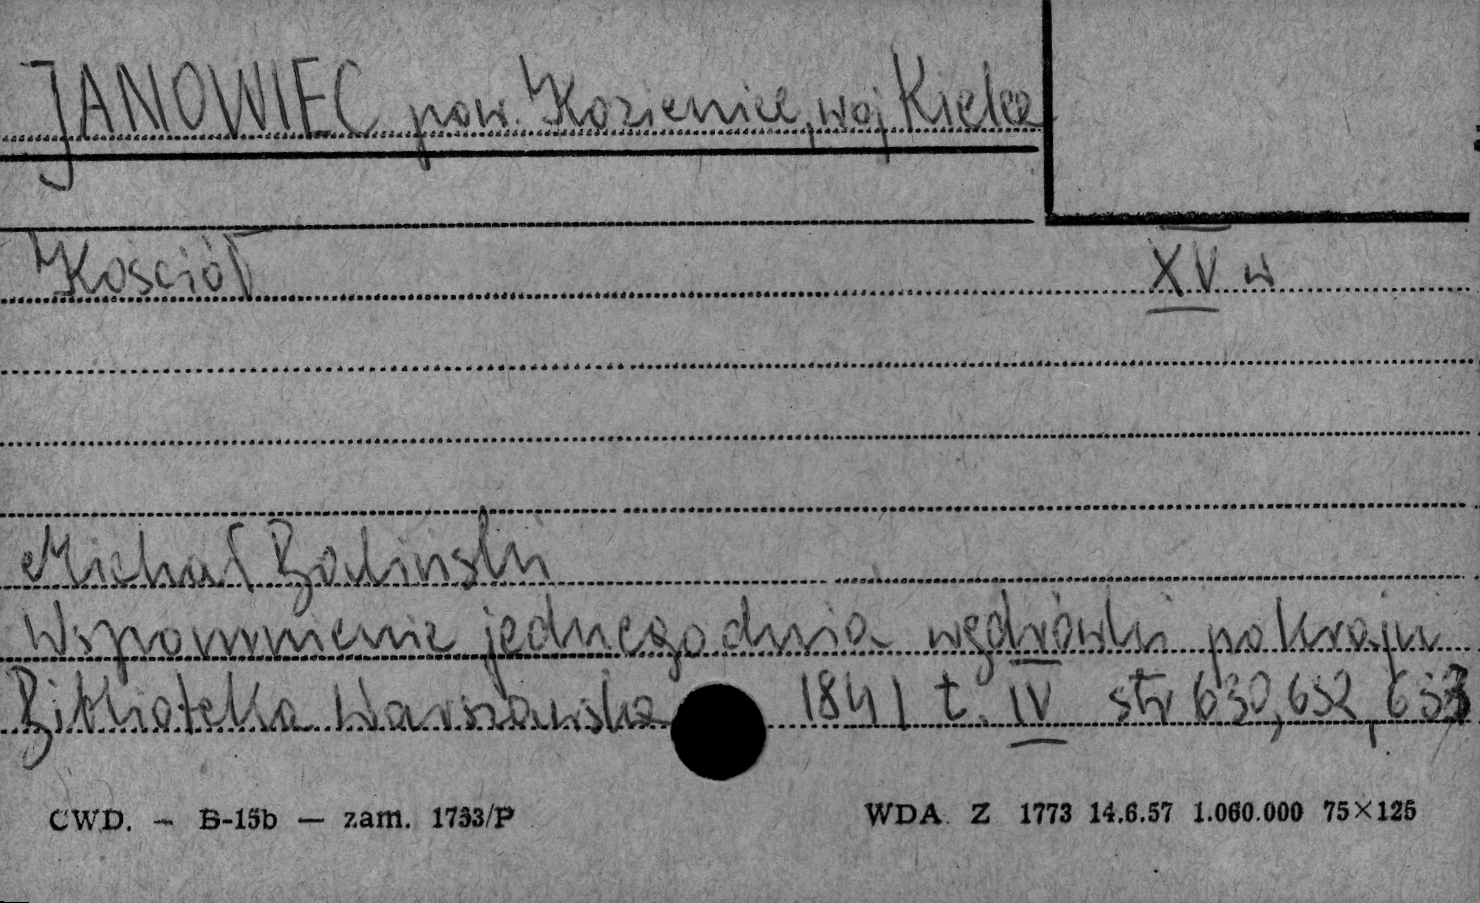 JANOWIEC pow. Kozienice, woj Kielce
Kościół XV w
Michał Baliński
Wspomnienie jednego dnia wędrówki po kraju
Biblioteka Warszawska 1841 t. IV str 630, 652, 653
CWD. — B-15b — zam. 1733/P WDA Z 1773 14.6.57 1.060.000 75×125